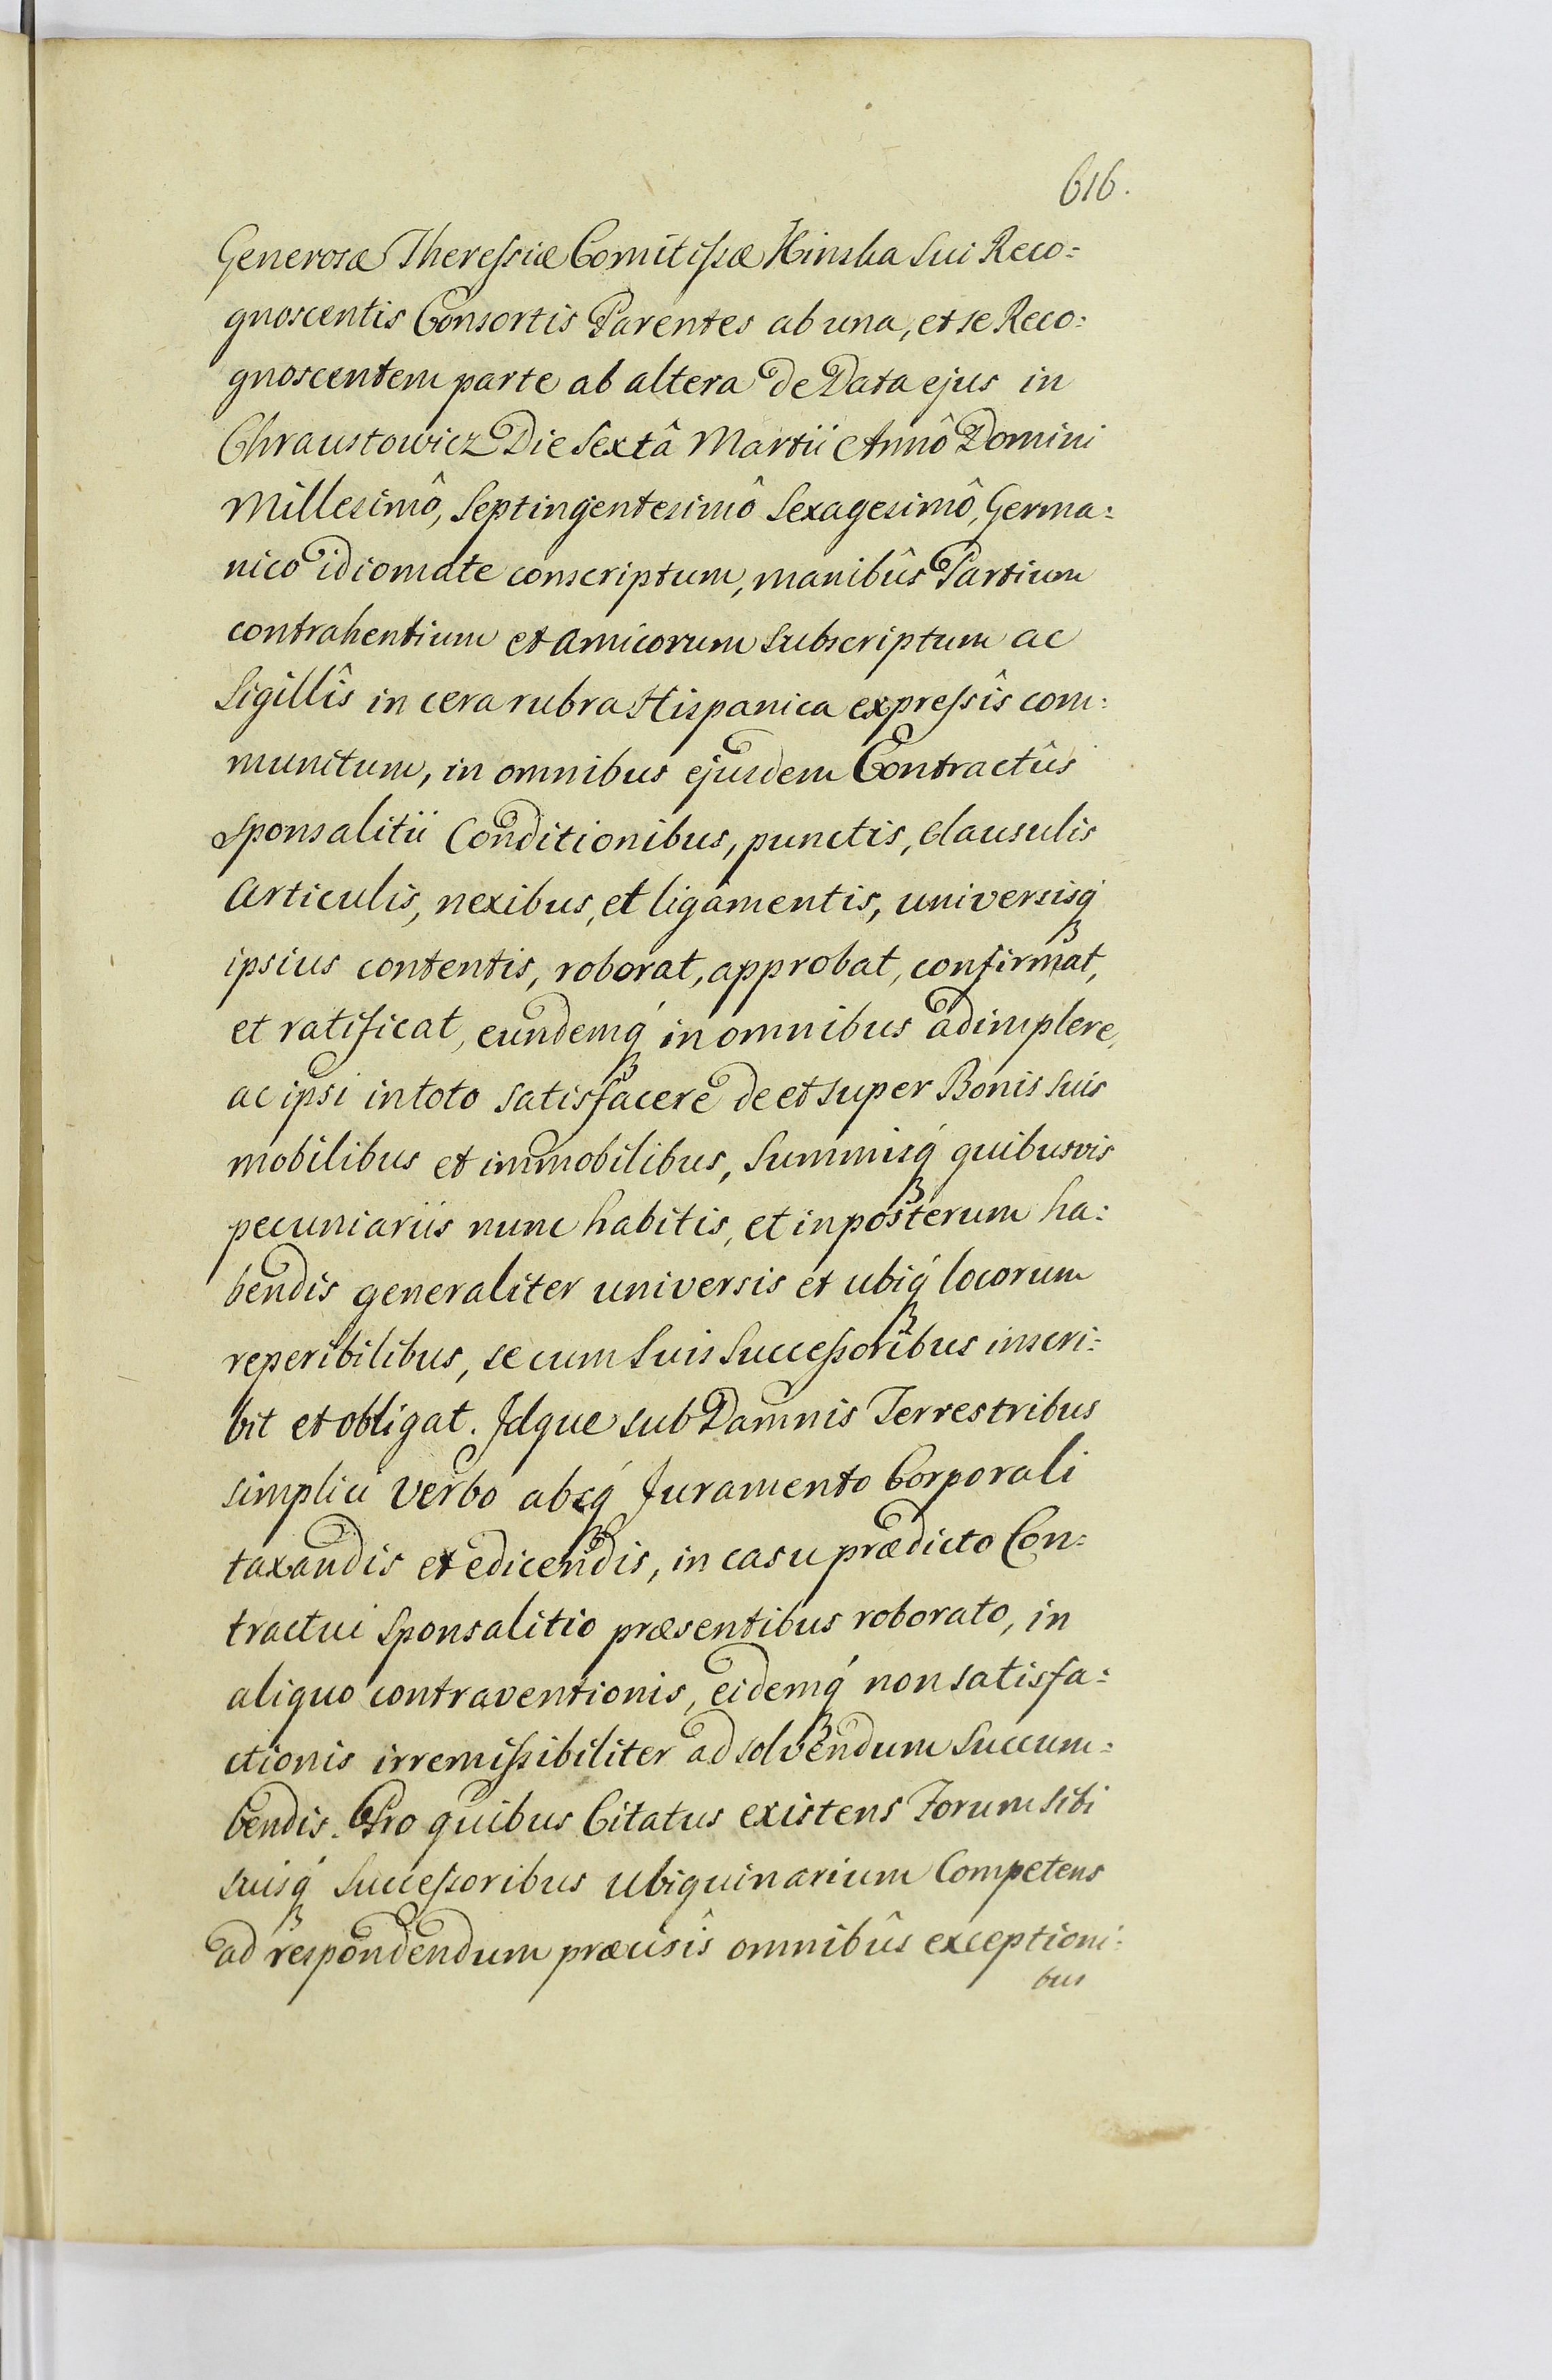 616.
Generosæ Theresſiæ Comitiſsæ Kinska Sui Reco=
gnoscentis Consortis Parentes ab una, et se Reco=
gnoscentem parte ab altera de Data ejus in
Chraustowicz Die Sextâ Martii Annô Domini
Millesimô, Septingentesimô Sexagesimô, Germa=
nico idiomate conscriptum, manibûs Partium
contrahentium et amicorum subscriptum ac
Sigillîs in cera rubra Hispanica expreſsîs com=
munitum, in omnibus ejusdem Contractûs
Sponsalitii Conditionibus, punctis, Clausulis
Articulis, nexibus, et ligamentis, universisq́
ipsius contentis, roborat, approbat, confirmat,
et ratificat, eundemq́ in omnibus adimplere,
ac ipsi in toto satisfacere de et super Bonis suis
mobilibus et immobilibus, Summisq́ quibusvis
pecuniariis nunc habitis, et in posterum ha=
bendis generaliter universis et ubiq́ locorum
reperibilibus, se cum Suis Succeſsoribus inscri=
bit et obligat. Idque sub Damnis Terrestribus
simplici Verbo absq́ Juramento Corporali
taxandis et edicendis, in casu prædicto Con=
tractui Sponsalitio præsentibus roborato, in
aliquo contraventionis, eidemq́ non satisfa=
ctionis irremiſsibiliter ad solvendum Succum=
bendis. Pro quibus Citatus existens Forum sibi
suisq́ Succeſsoribus ubiquinarium Competens
ad respondendum præcisîs omnibûs exceptioni=
bus